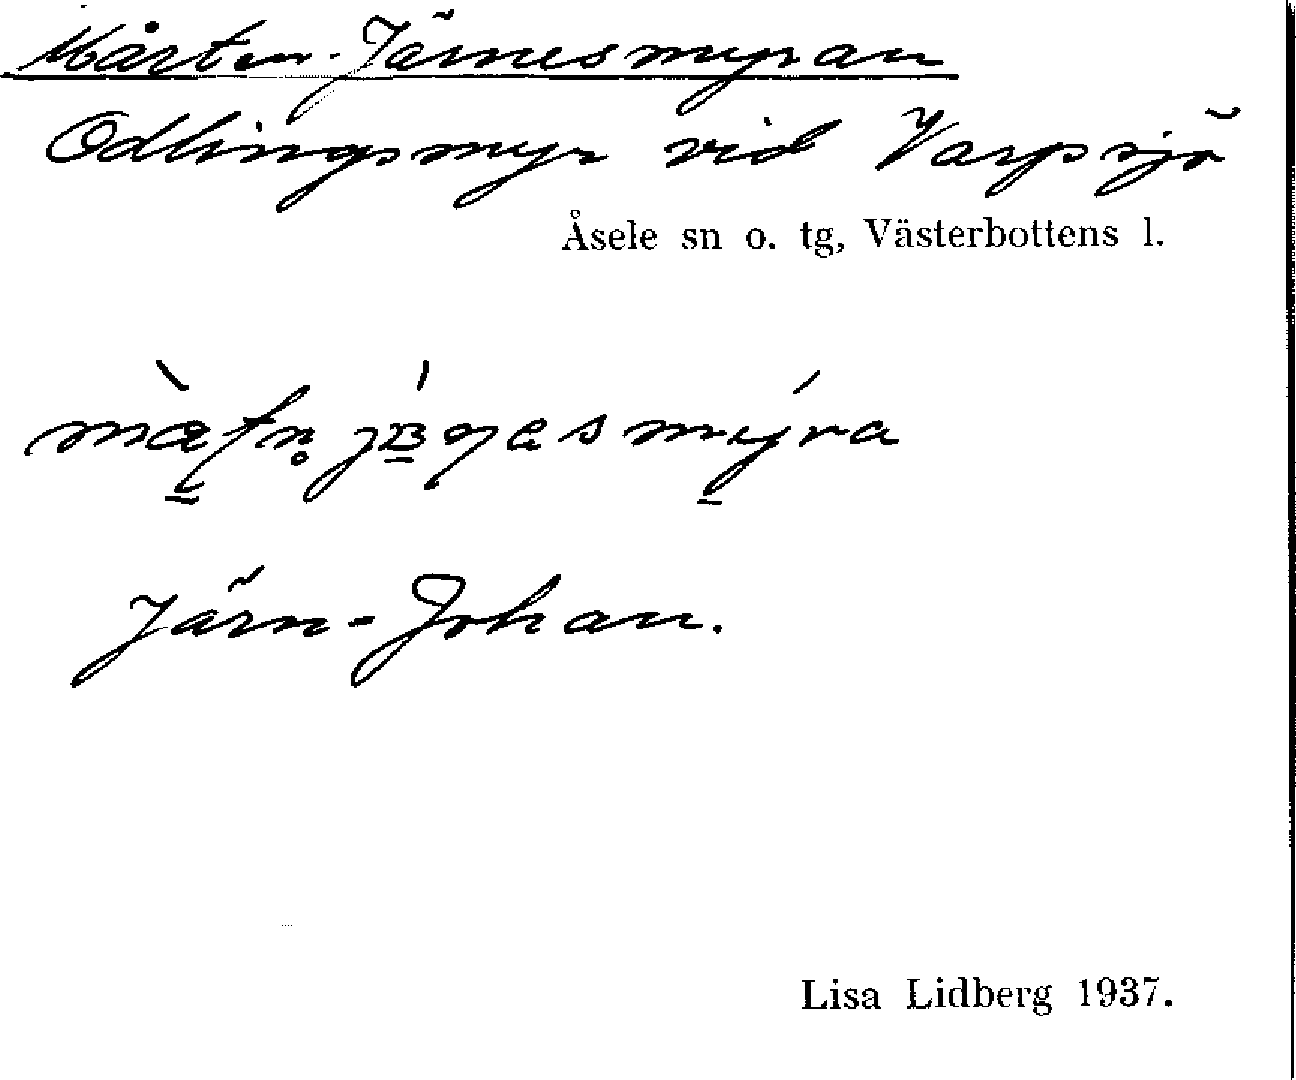 Mårten-Järnesmyran
Odlingsmyr vid Varpsjö
Åsele sn o. tg, Västerbottens l.
Järn-Johan.
Lisa Lidberg 1937.